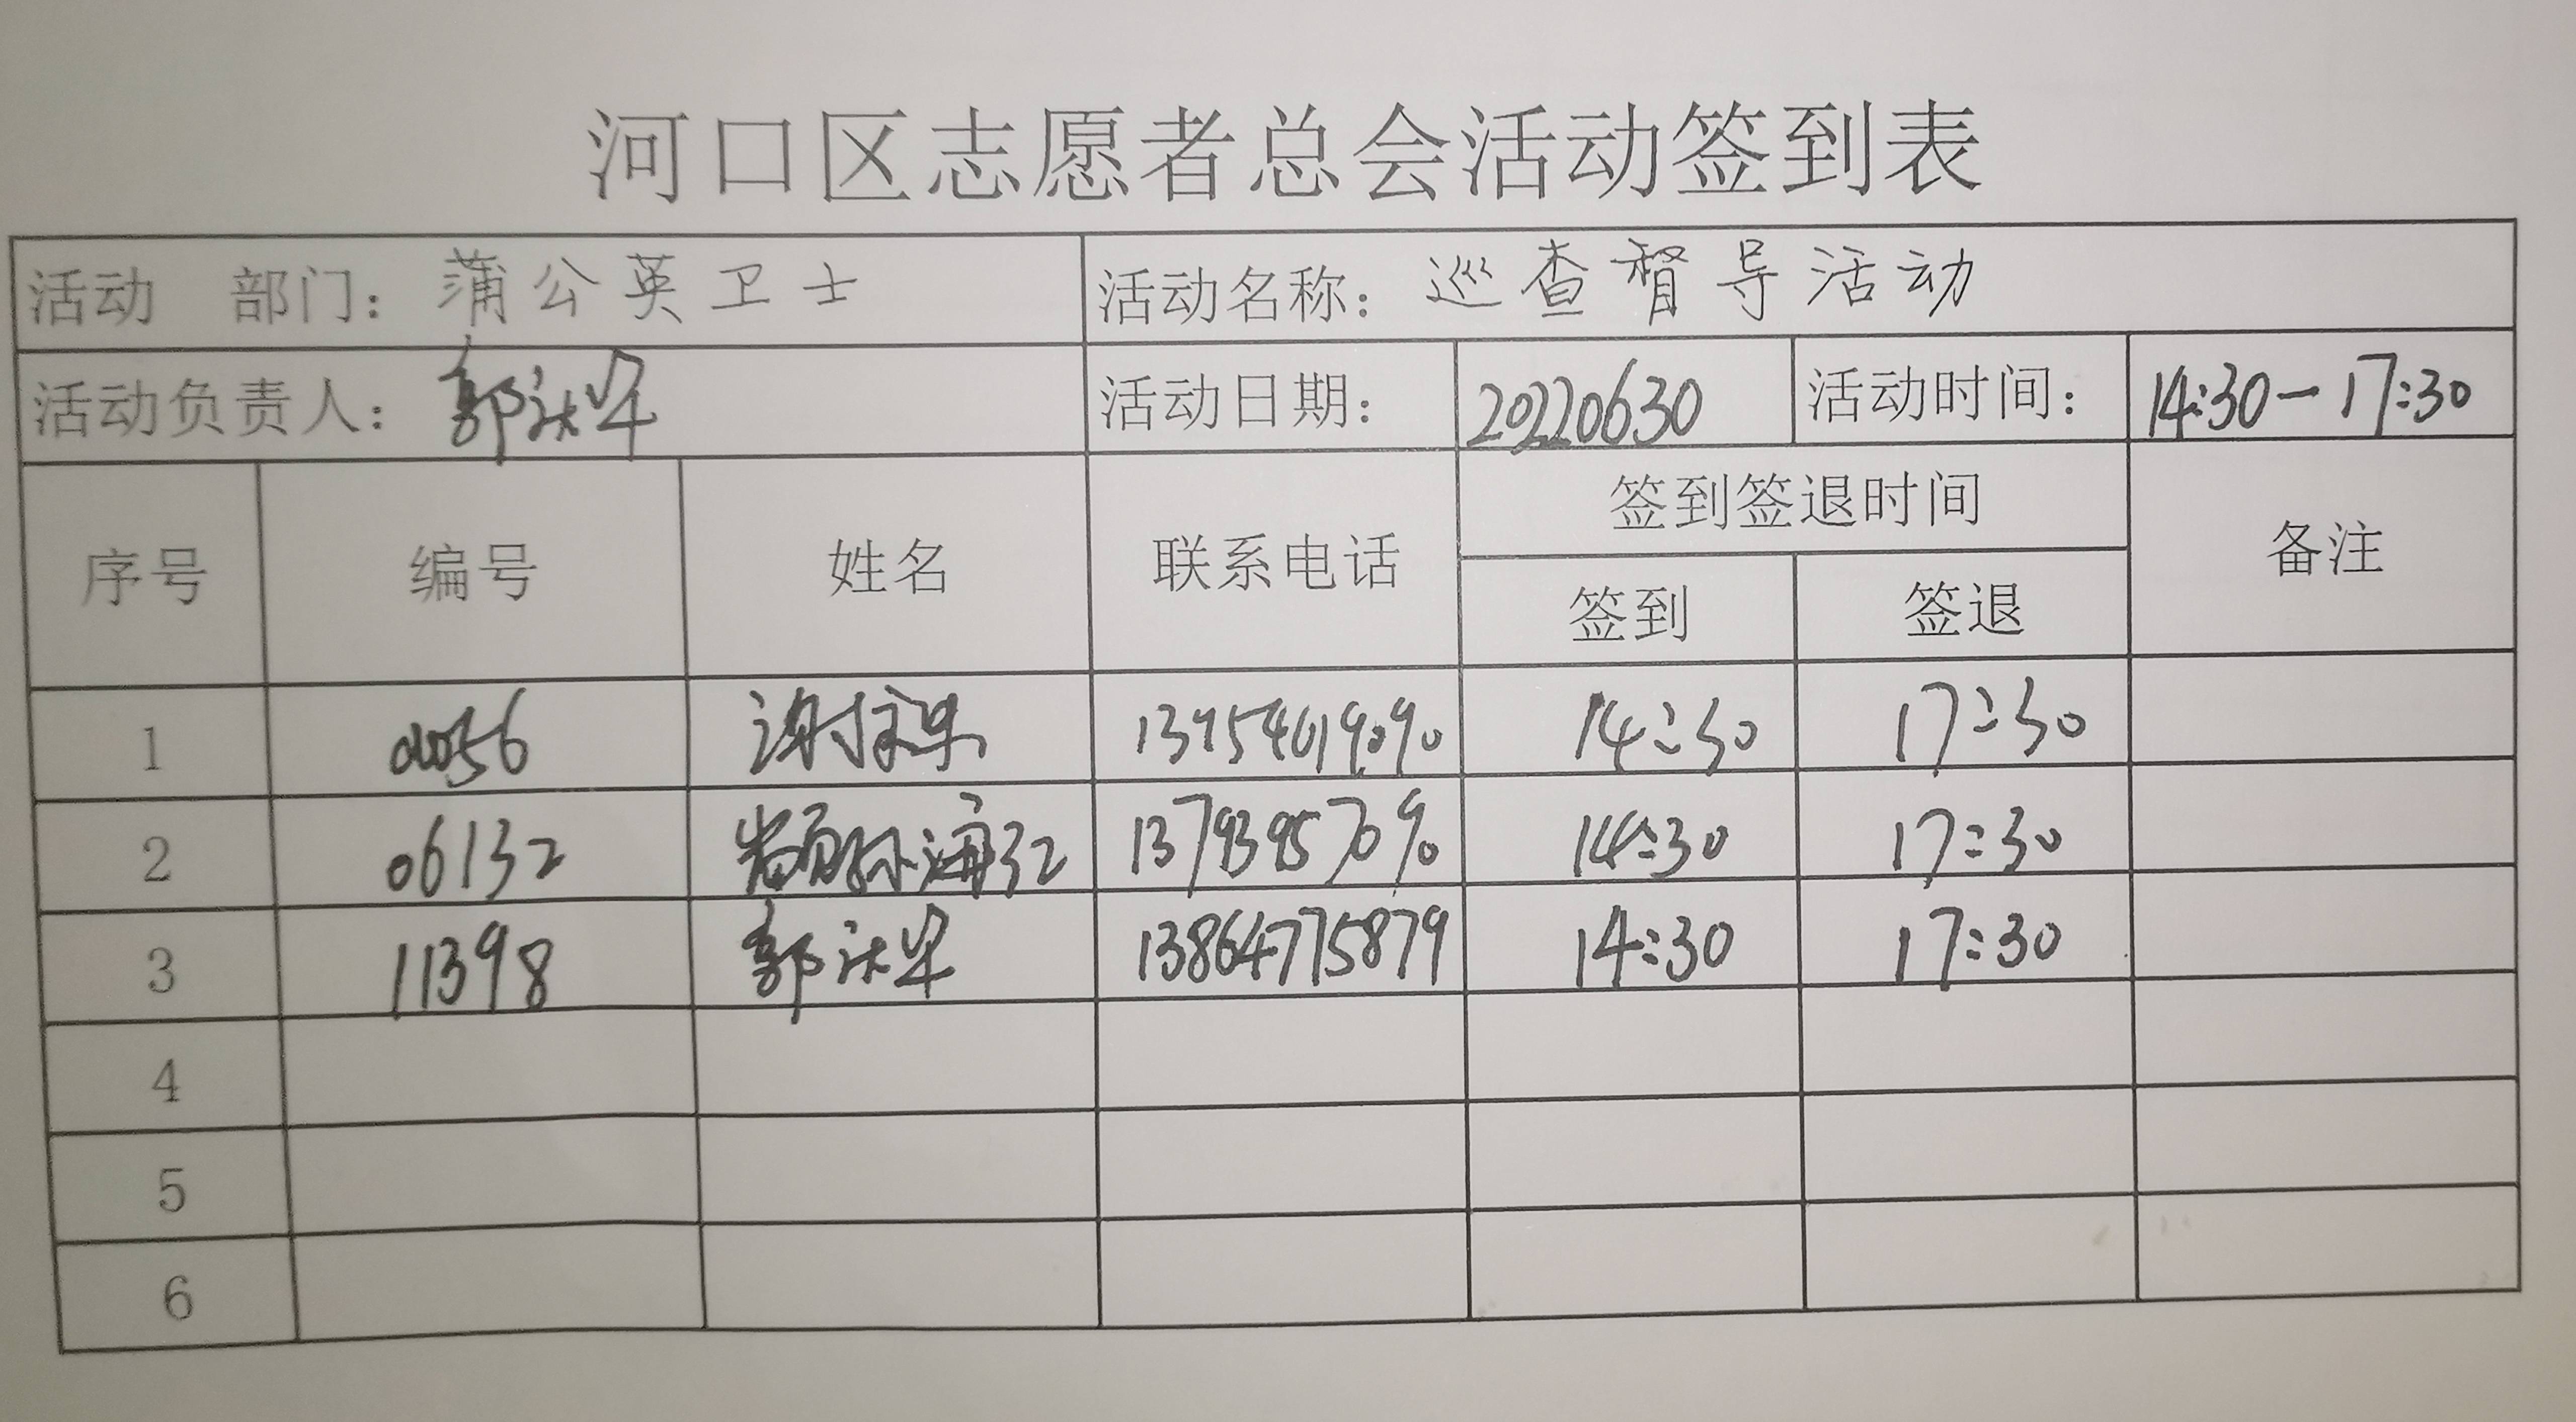 河口区志愿者总会活动签到表
活动 部门： 蒲公英卫士 活动名称： 巡查督导活动
活动负责人： 郭 活动日期： 20220630 活动时间： 14:30-17:30
序号 编号 姓名 联系电话 签到签退时间 备注
签到 签退
1 谢 14:30 17:30
2 06132 13793957090 14:30 17:30
3 11398 郭 13864775879 14:30 17:30
4
5
6